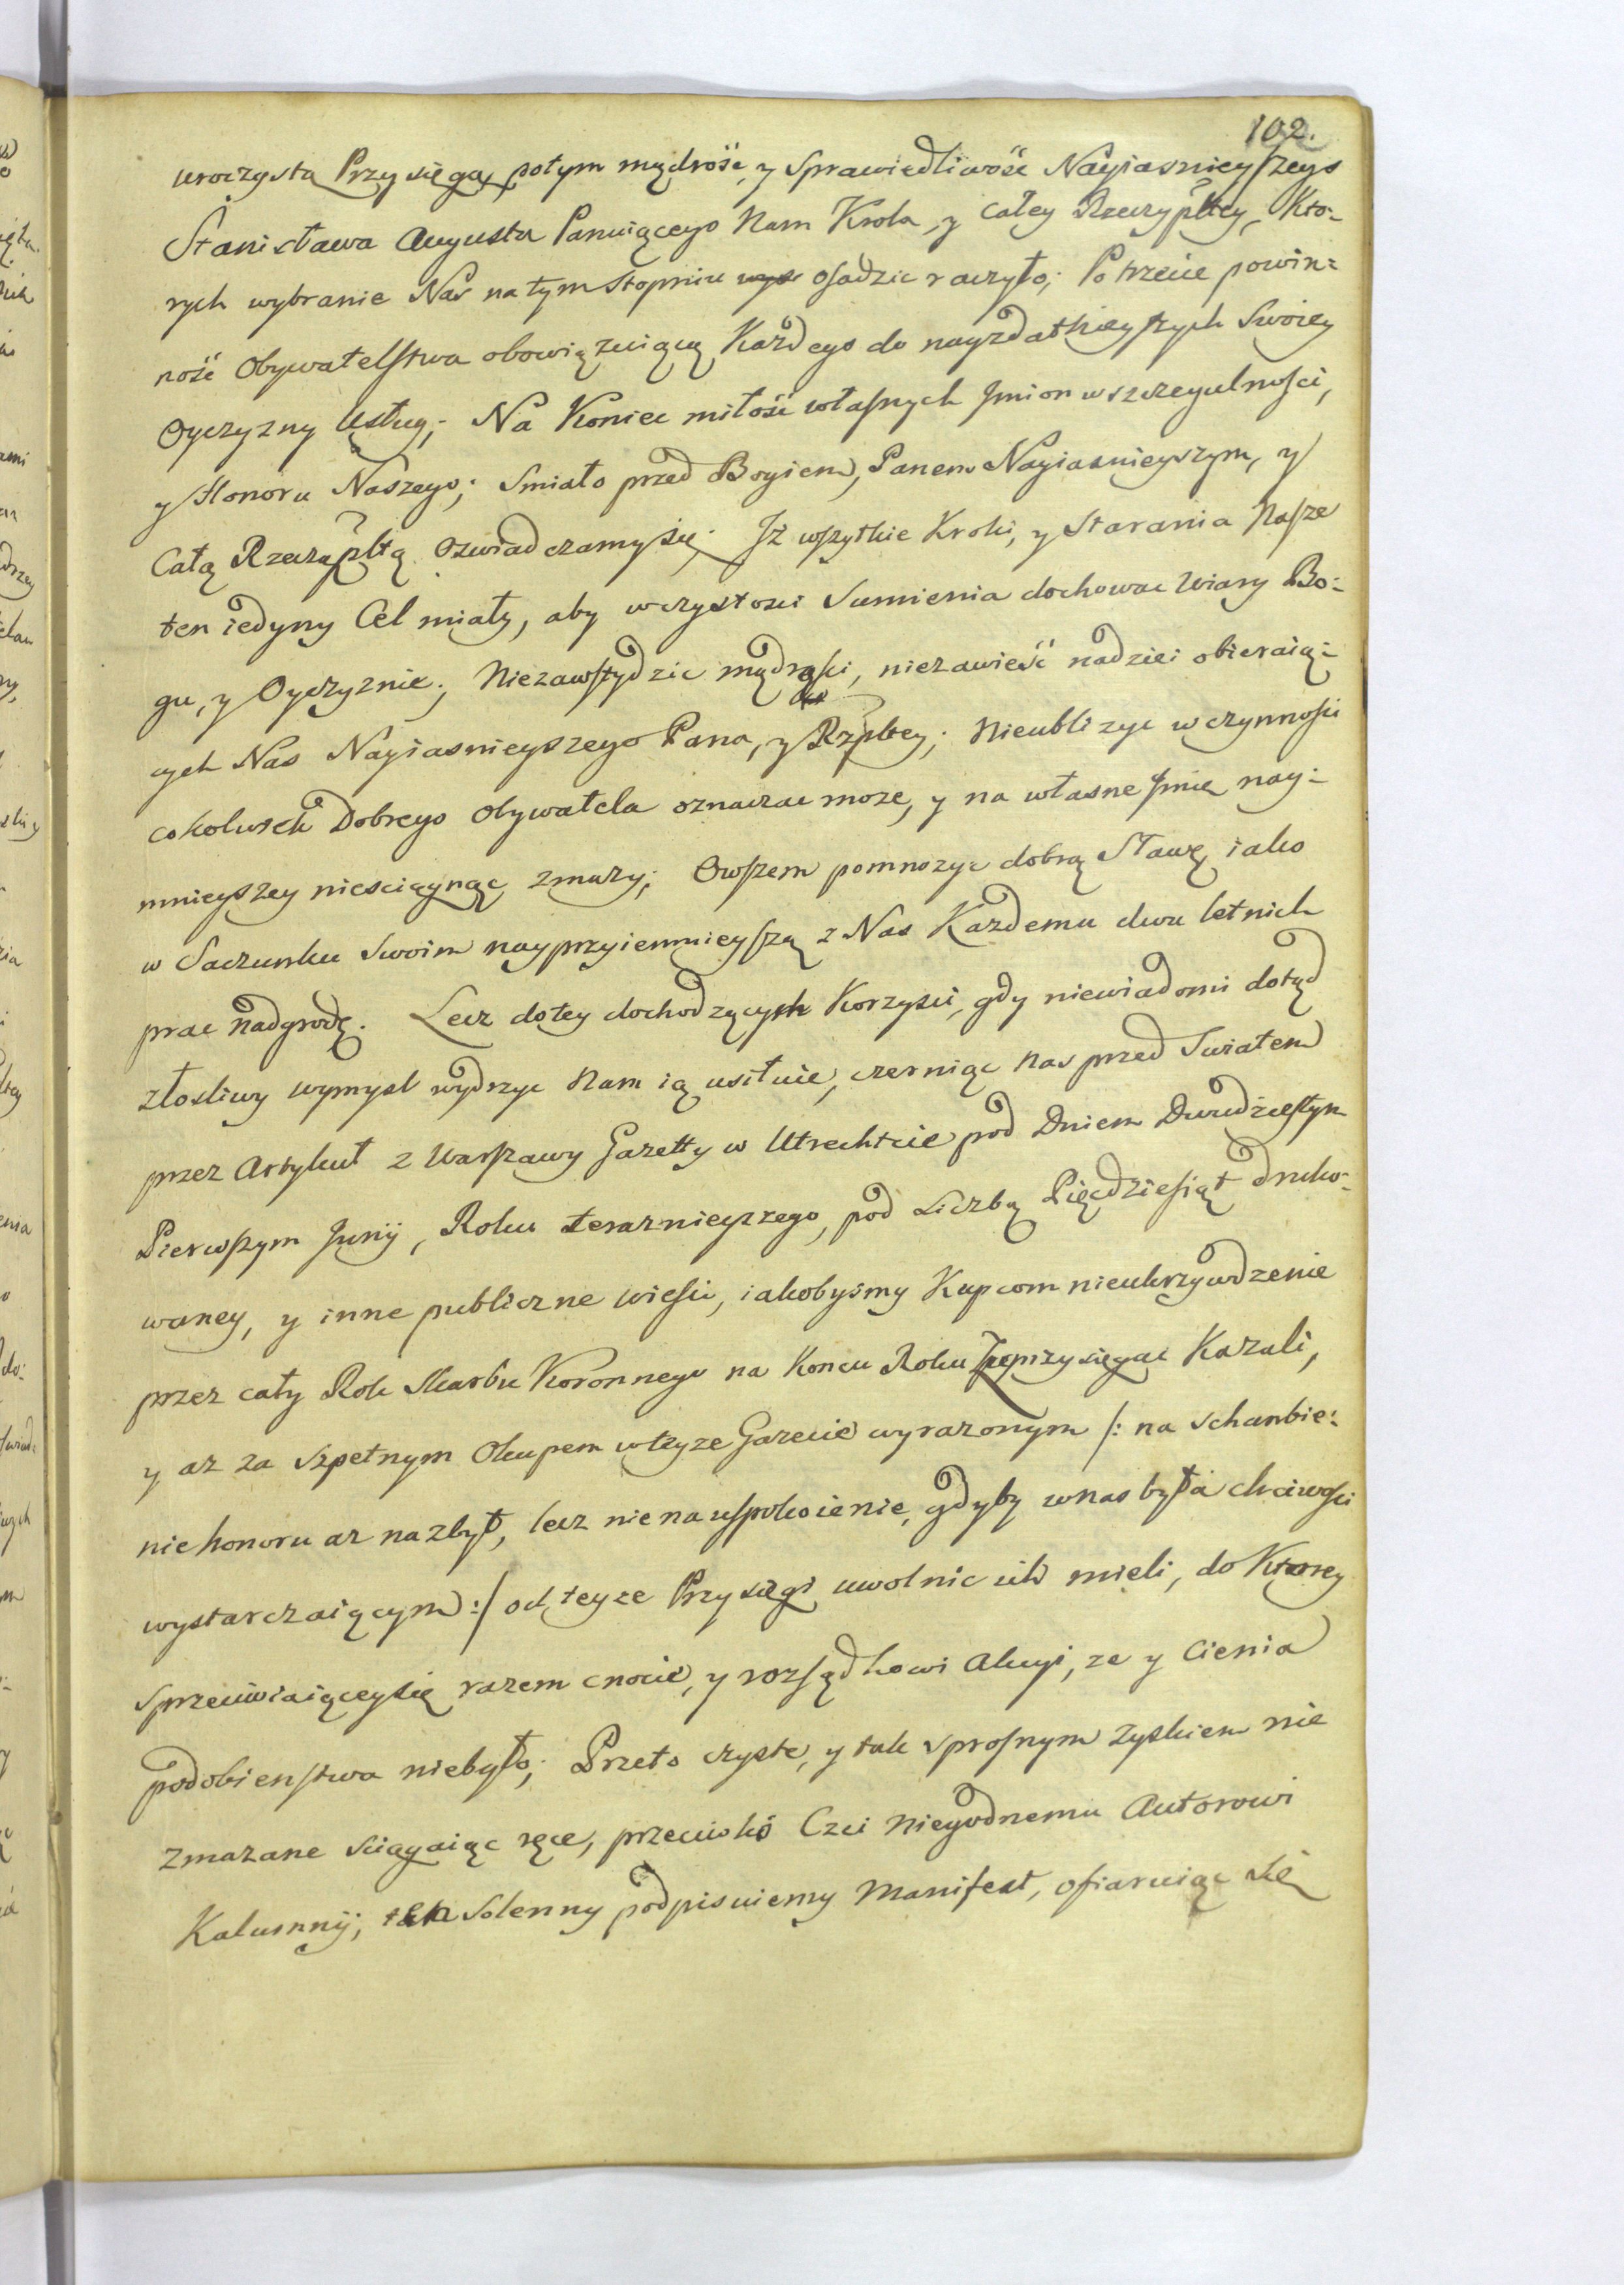 102.
uroczysta Przysięga, potym mądrość, y Sprawiedliwość Nayiasnieyszego
Stanisława Augusta Panuiącego Nam Krola, y całey Rzeczypltey, Kto:
rych wybranie Nas na tym Stopniu osadzic raczyło; Po trzecie powin:
ność Obywatelstwa obowięzuiącą Każdego do nayzdatnieyszych Swoiey
Oyczyzny Usług; Na Koniec miłość własnych Jmion w szczegulności,
y Honoru Naszego; Smiało przed Bogiem, Panem Nayiasnieyszym, y
Całą Rzecząpltą Oswiadczamy się; Jż wszytkie Kroki, y Starania Nasze
ten iedyny Cel miały, aby w czystosci Sumienia dochować Wiary Bo:
gu, y Oyczyznie; Niezawstydzic mądrości, niezawieść nadziei obieraią:
cych Nas Nayiasnieyszego Pana, y Rzpltey; Nieublizyc w czynnosci
cokolwiek Dobrego Obywatela oznaczac moze, y na własne Jmie nay:
mnieyszey niesciągnąc zmazy; Owszem pomnozyc dobrą Sławę iako
w Saczunku Swoim nayprzyiemnieyszą z Nas Kazdemu dwu letnich
prac nadgrodę. Lecz do tey dochodzących Korzysci, gdy niewiadomi dotąd
złosliwy wymysl wydrzyc Nam ią usiłuie, czerniąc Nas przed Swiatem
przez Artykuł z Warszawy Gazetty w Utrechcie pod Dniem Dwudziestym
Pierwszym Junij, Roku terazniejszego, pod Liczbą Pięcdziesiąt druko:
waney, y inne publiczne wiesci, iakobyśmy Kupcom nieukrzywdzenie
przez cały Rok Skarbu Koronnego na Koncu Roku przysięgac Kazali,
y az za Szpetnym Okupem w teyze Gazecie wyrazonym /: na schanbie:
nie honoru az nazbyt, lecz nie na uspokoienie, gdyby w nas była chciwosci
wystarczaiącym :/ od teyze Przysięgi uwolnic ich mieli, do Ktorey
Sprzeciwiaiącey się razem cnocie, y rozsądkowi Akcyi, ze y Cienia
podobienstwa niebyło; Przeto czyste, y tak sprosnym Zyskiem nie
zmazane sciągaiąc ręce, przeciwko Czci niegodnemu Autorowi
Kalumnij; ten Solenny podpisuiemy Manifest, ofiaruiąc się